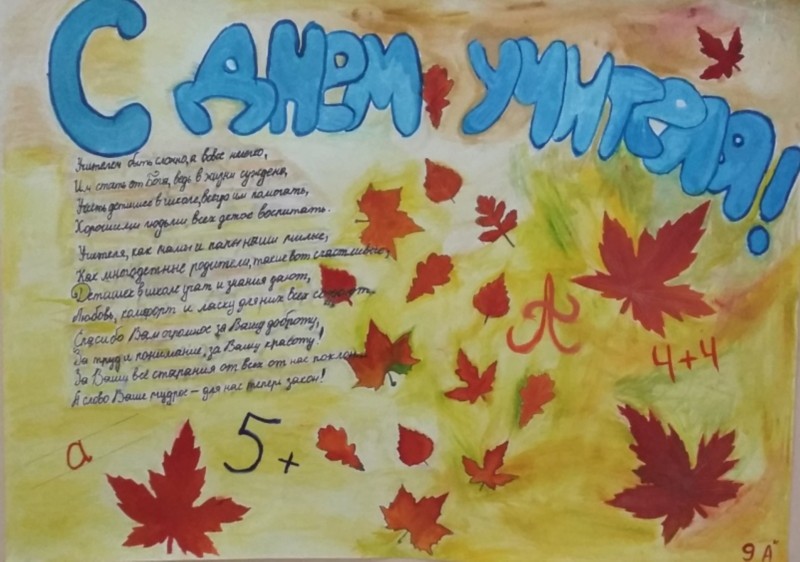 С Днем учителя!
Учителем быть сложно, а вовсе нелегко,
Им стать от Бога, ведь в жизни суждено,
Учить детишек в школе, всегда им помогать,
Хорошими людьми всех деток воспитать.
Учителя, как мамы и папы наши милые,
Как многодетные родители, такие вот счастливые,
Детишек в школе учат и знания дают,
Любовь, комфорт и ласку для них всех создают.
Спасибо Вам огромное за Вашу доброту,
За труд и понимание, за Вашу красоту!
За Ваши все старания от всех от нас поклон
А слово Ваше мудрое – для нас теперь закон!
А
4+4
а
5+
9 А"